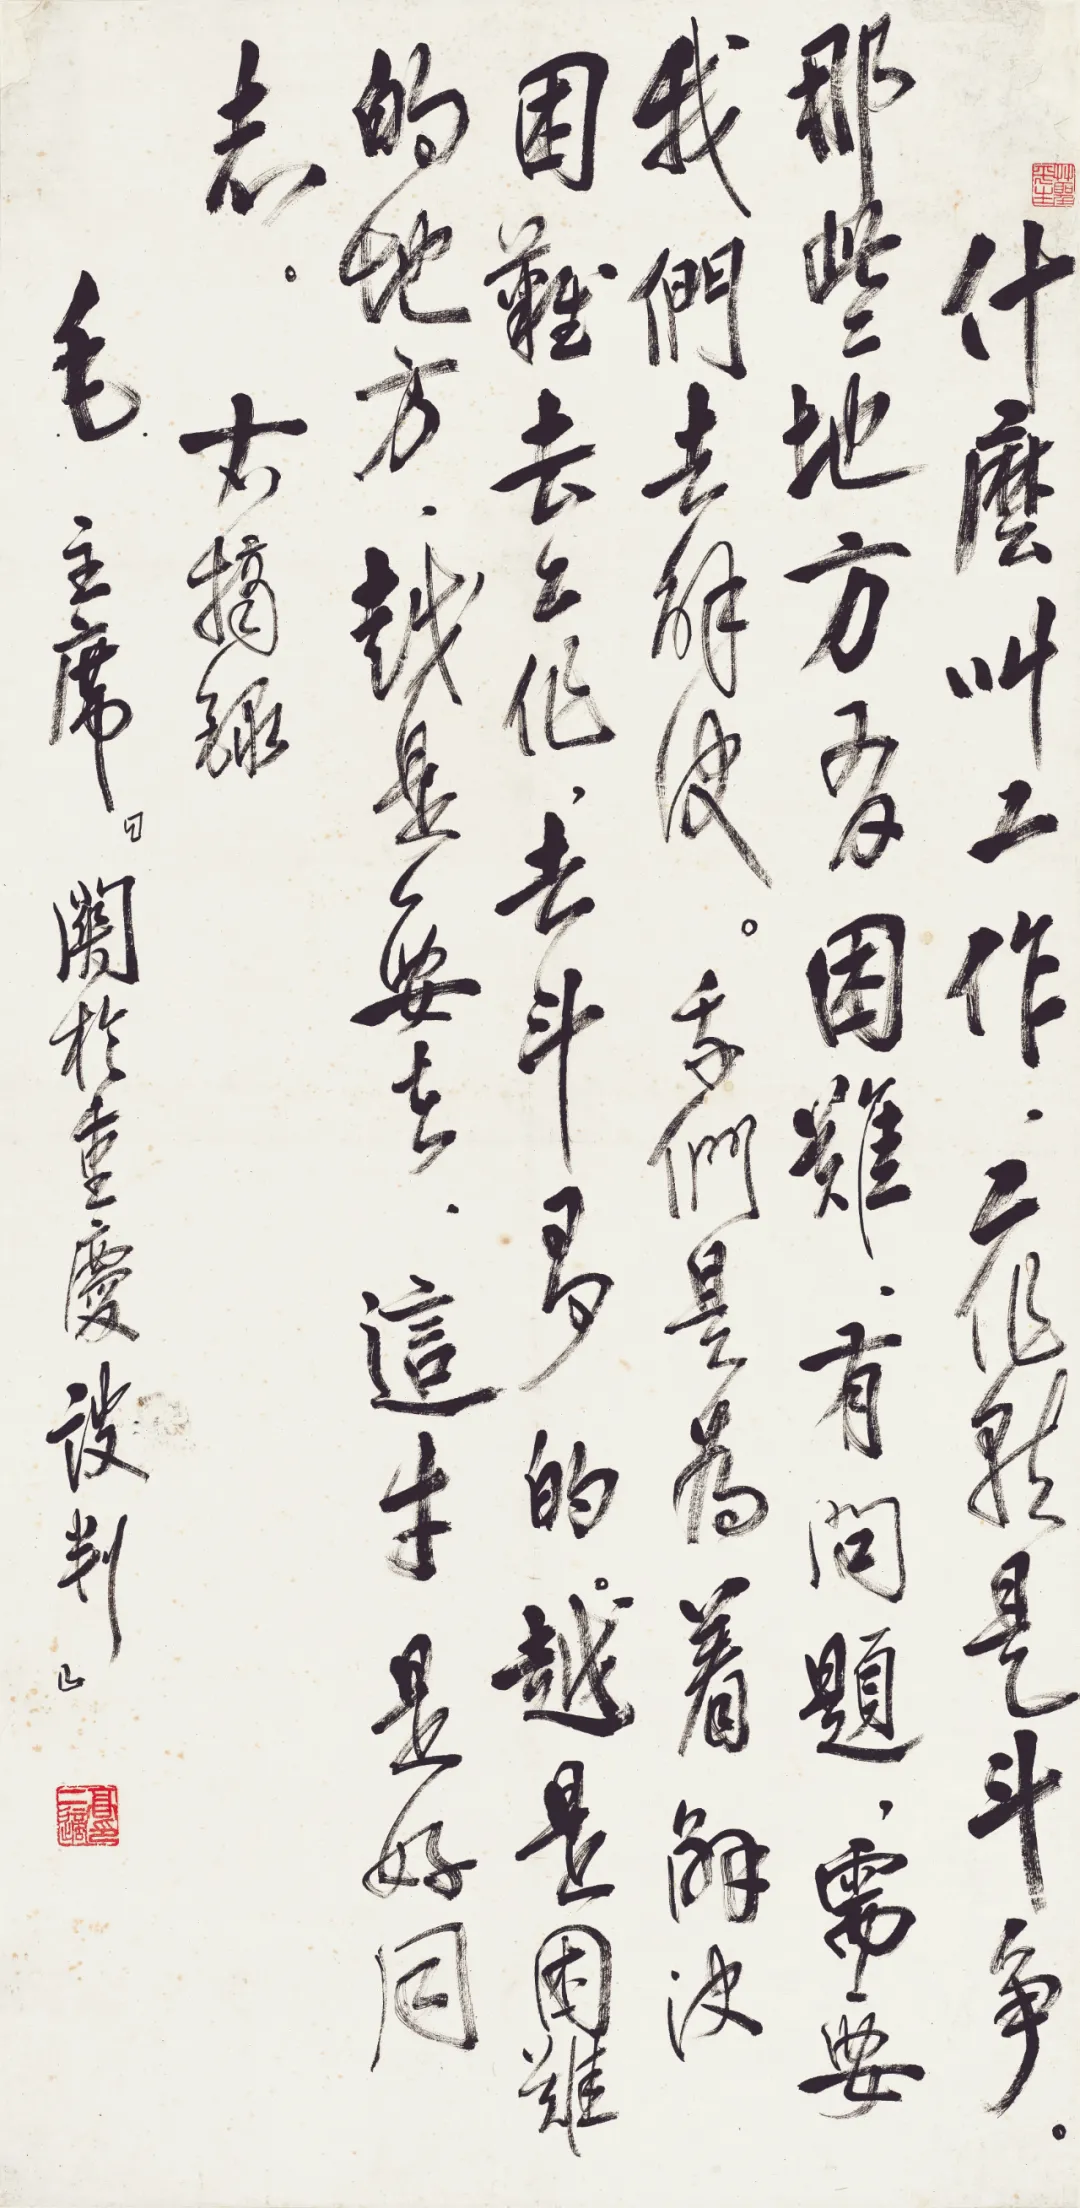 艸聖平生
什麼叫工作、工作就是斗争。
那些地方有困難、有問題、需要
我們去解決。我們是為着解決
困難去工作、去斗争的。越是困難
的地方、越是要去、這才是好同
志。
右摘錄
毛主席「關於重慶談判」
高印二適